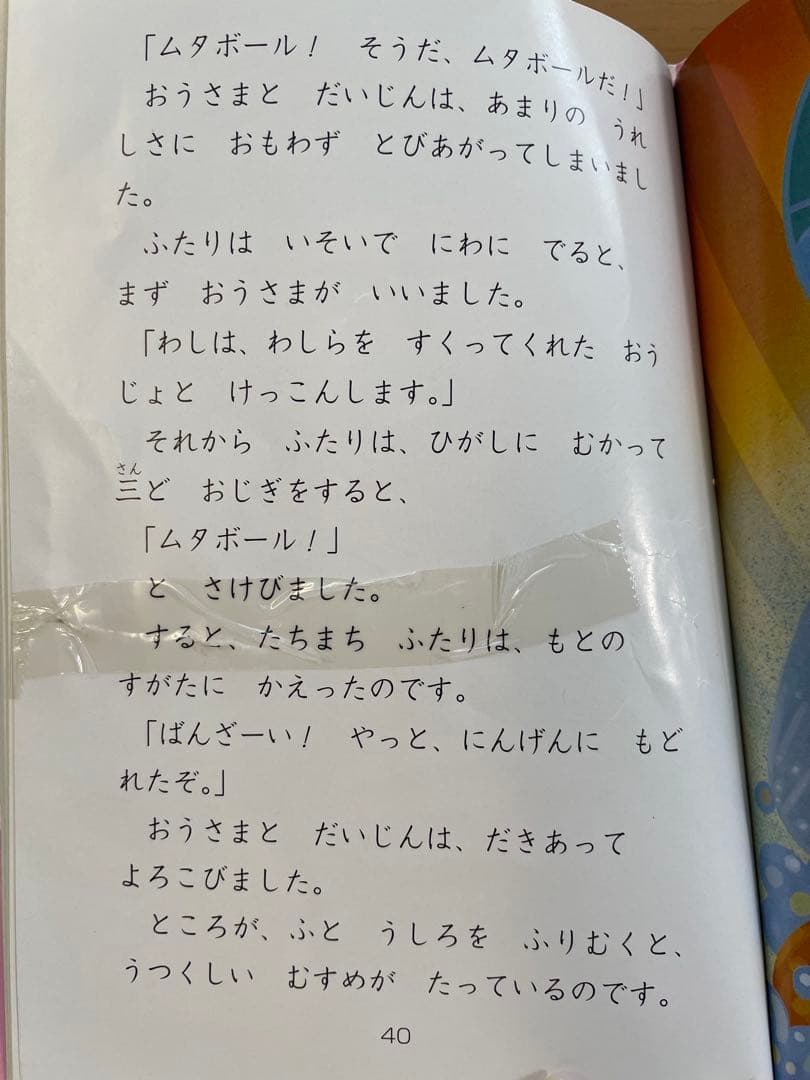 「ムタボール！　そうだ、ムタボールだ！」
おうさまと　だいじんは、あまりの　うれ
しさに　おもわず　とびあがってしまいまし
た。
ふたりは　いそいで　にわに　でると、
まず　おうさまが　いいました。
「わしは、わしらを　すくってくれた　おう
じょと　けっこんします。」
それから　ふたりは、ひがしに　むかって
さん
三ど　おじぎをすると、
「ムタボール！」
と　さけびました。
すると、たちまち　ふたりは、もとの
すがたに　かえったのです。
「ばんざーい！　やっと、にんげんに　もど
れたぞ。」
おうさまと　だいじんは、だきあって
よろこびました。
ところが、ふと　うしろを　ふりむくと、
うつくしい　むすめが　たっているのです。
40